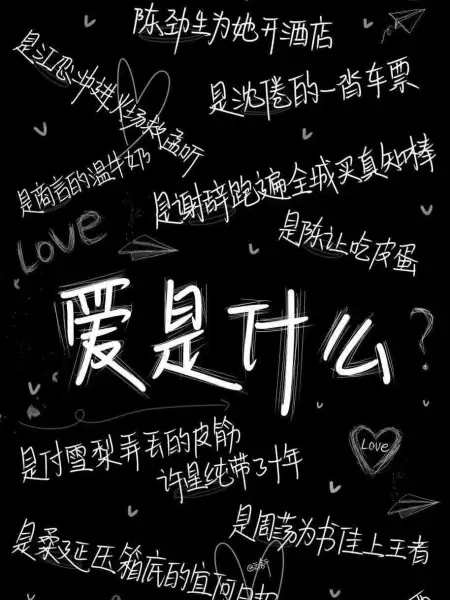 陈劲生为她开酒店
是江忍冲进火场救孟听
是沈倦的一沓车票
是商言的温牛奶
是谢辞跑遍全城买真知棒
是陈让吃皮蛋
Love
爱是什么?
是付雪梨弄丢的皮筋
许星纯带了十年
Love
是周荡为书佳上王者
是柔延压箱底的